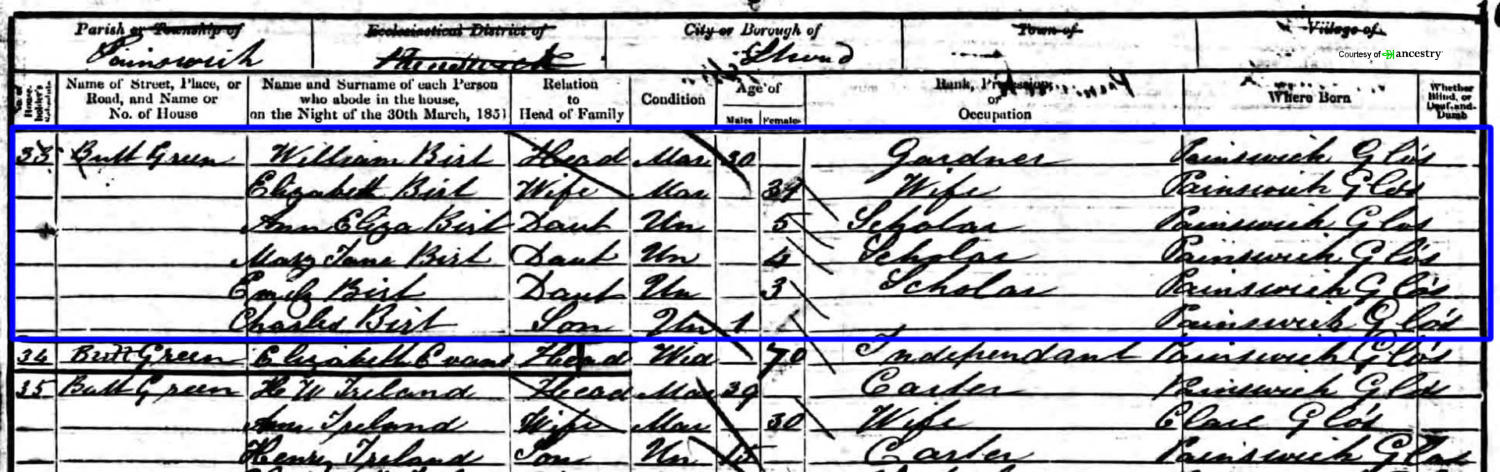 Parish or Township of Ecclesiastical District of City or Borough of Town of Village of
Painswick Stroud
Courtesy of ancestry
Name of Street, Place, or Road, and Name or No. of House
Name and Surname of each Person who abode in the house, on the Night of the 30th March, 1851
Relation to Head of Family
Condition
Age of
Males Females
Rank, Profession, or Occupation
Where Born
Whether Blind, or Deaf-and-Dumb
33 Butt Green William Birt Head Mar 30 Gardner Painswick Glos
Elizabeth Birt Wife Mar Wife Painswick Glos
Ann Eliza Birt Daut Un 5 Scholar Painswick Glos
Mary Jane Birt Daut Un 4 Scholar Painswick Glos
Emily Birt Daut Un 3 Scholar Painswick Glos
Charles Birt Son Un 1 Painswick Glos
34 Butt Green Elizabeth Evans Head Wid 70 Independant Painswick Glos
35 Butt Green H W Ireland Head Mar 39 Carter Painswick Glos
Ann Ireland Wife Mar 30 Wife Glos
Henry Ireland Son Un Carter Painswick G